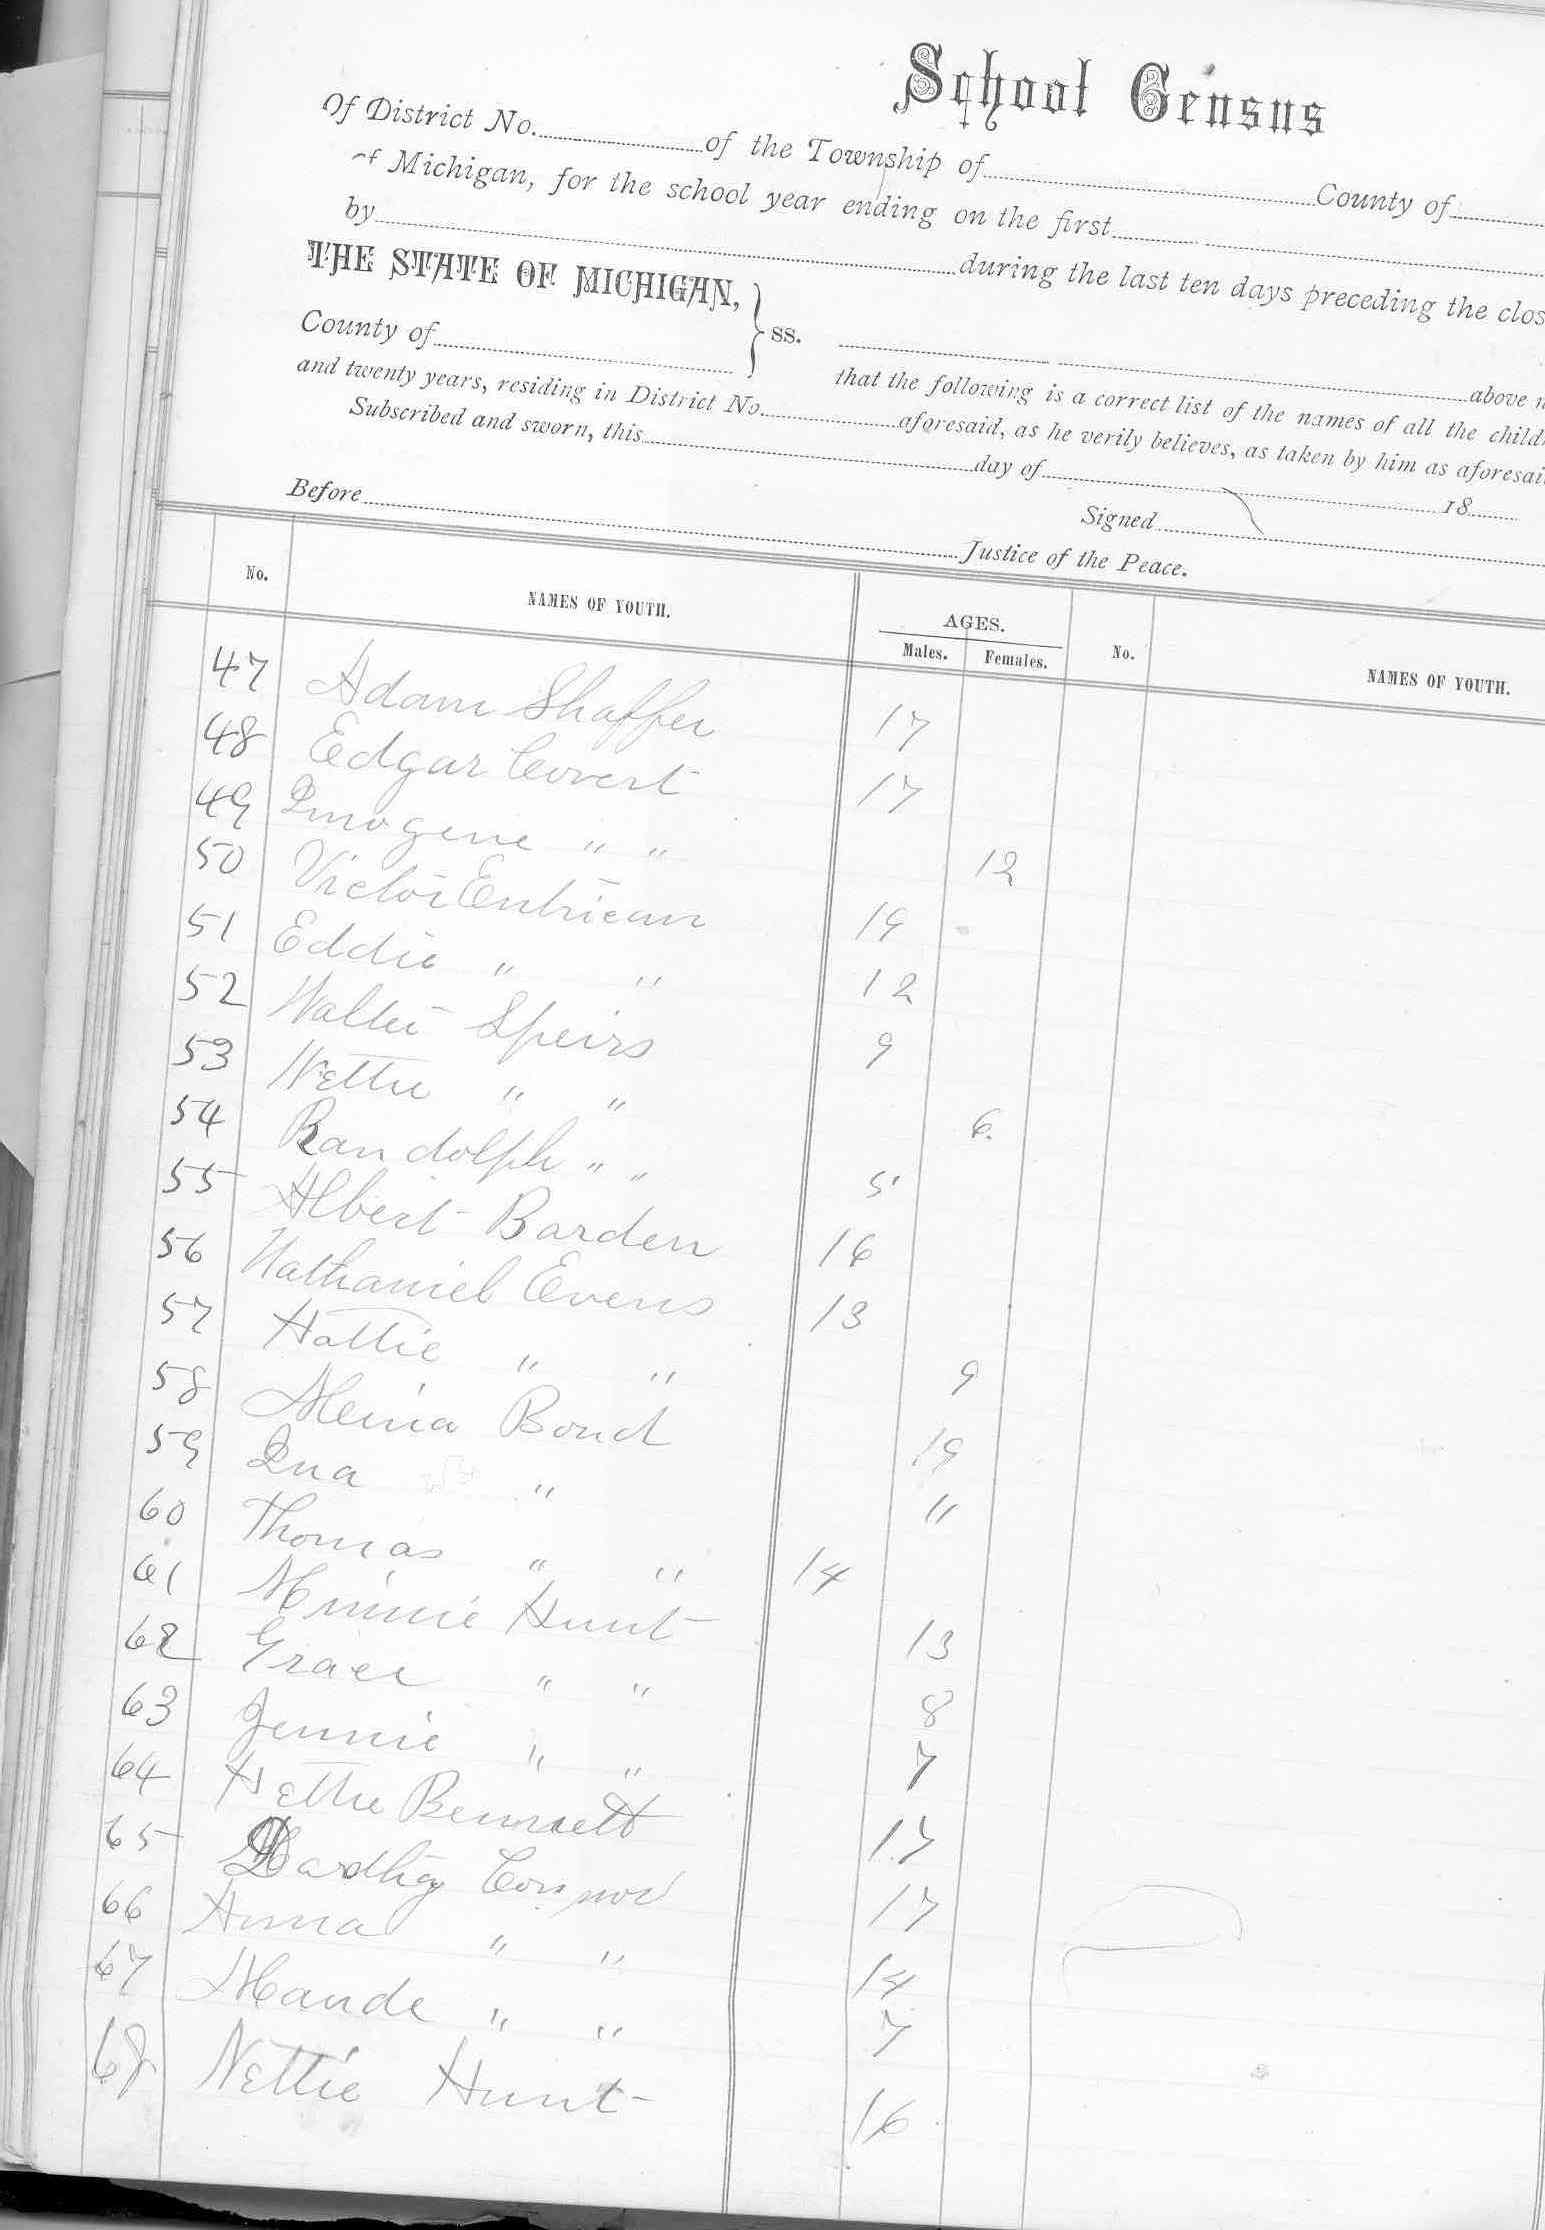 School Census
Of District No. of the Township of County of
of Michigan, for the school year ending on the first
by during the last ten days preceding the clos
THE STATE OF MICHIGAN,
County of ss. above n
that the following is a correct list of the names of all the child
and twenty years, residing in District No. aforesaid, as he verily believes, as taken by him as aforesai
Subscribed and sworn, this day of 18
Signed
Before Justice of the Peace.
No. NAMES OF YOUTH. AGES. No. NAMES OF YOUTH.
Males. Females.
47 Adam Shaffer 17
48 Edgar Covert 17
49 Imogene " " 12
50 Victor Entrican 19
51 Eddie " " 12
52 Walter Speirs 9
53 Nettie " " 6
54 Randolph " " 5
55 Albert Barden 16
56 Nathaniel Evens 13
57 Hattie " " 9
58 Bond 19
59 Ina " 11
60 Thomas " " 14
61 Minnie Hunt 13
62 Grace " " 8
63 Jennie " " 7
64 Hettie Bennett 17
65 17
66 Anna " " 14
67 Maude " " 7
68 Nettie Hunt 16